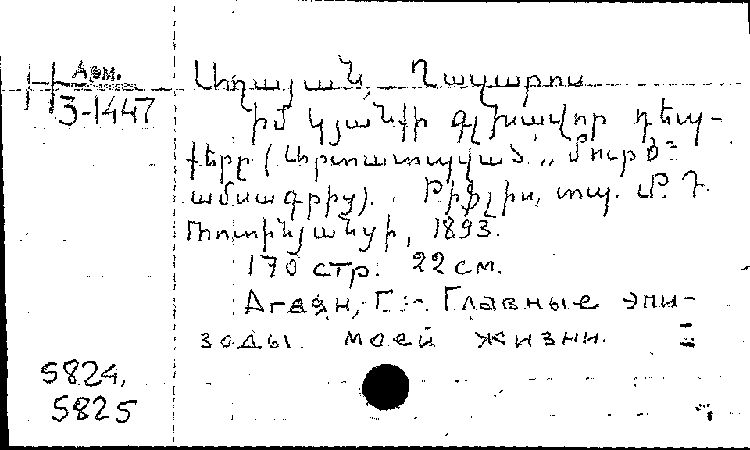 Арм.
3-1447
Աղայան, Ղազարոս
Իմ կյանքի գլխավոր դեպ-
քերը (Արտատպված „Մուրճ"
ամսագրից). Թիֆլիս, տպ. Մ. Դ.
Ռոտինյանցի, 1893.
170 стр. 22 см.
Агаян, Г. - Главные эпи-
зоды моей жизни. =
5824,
5825